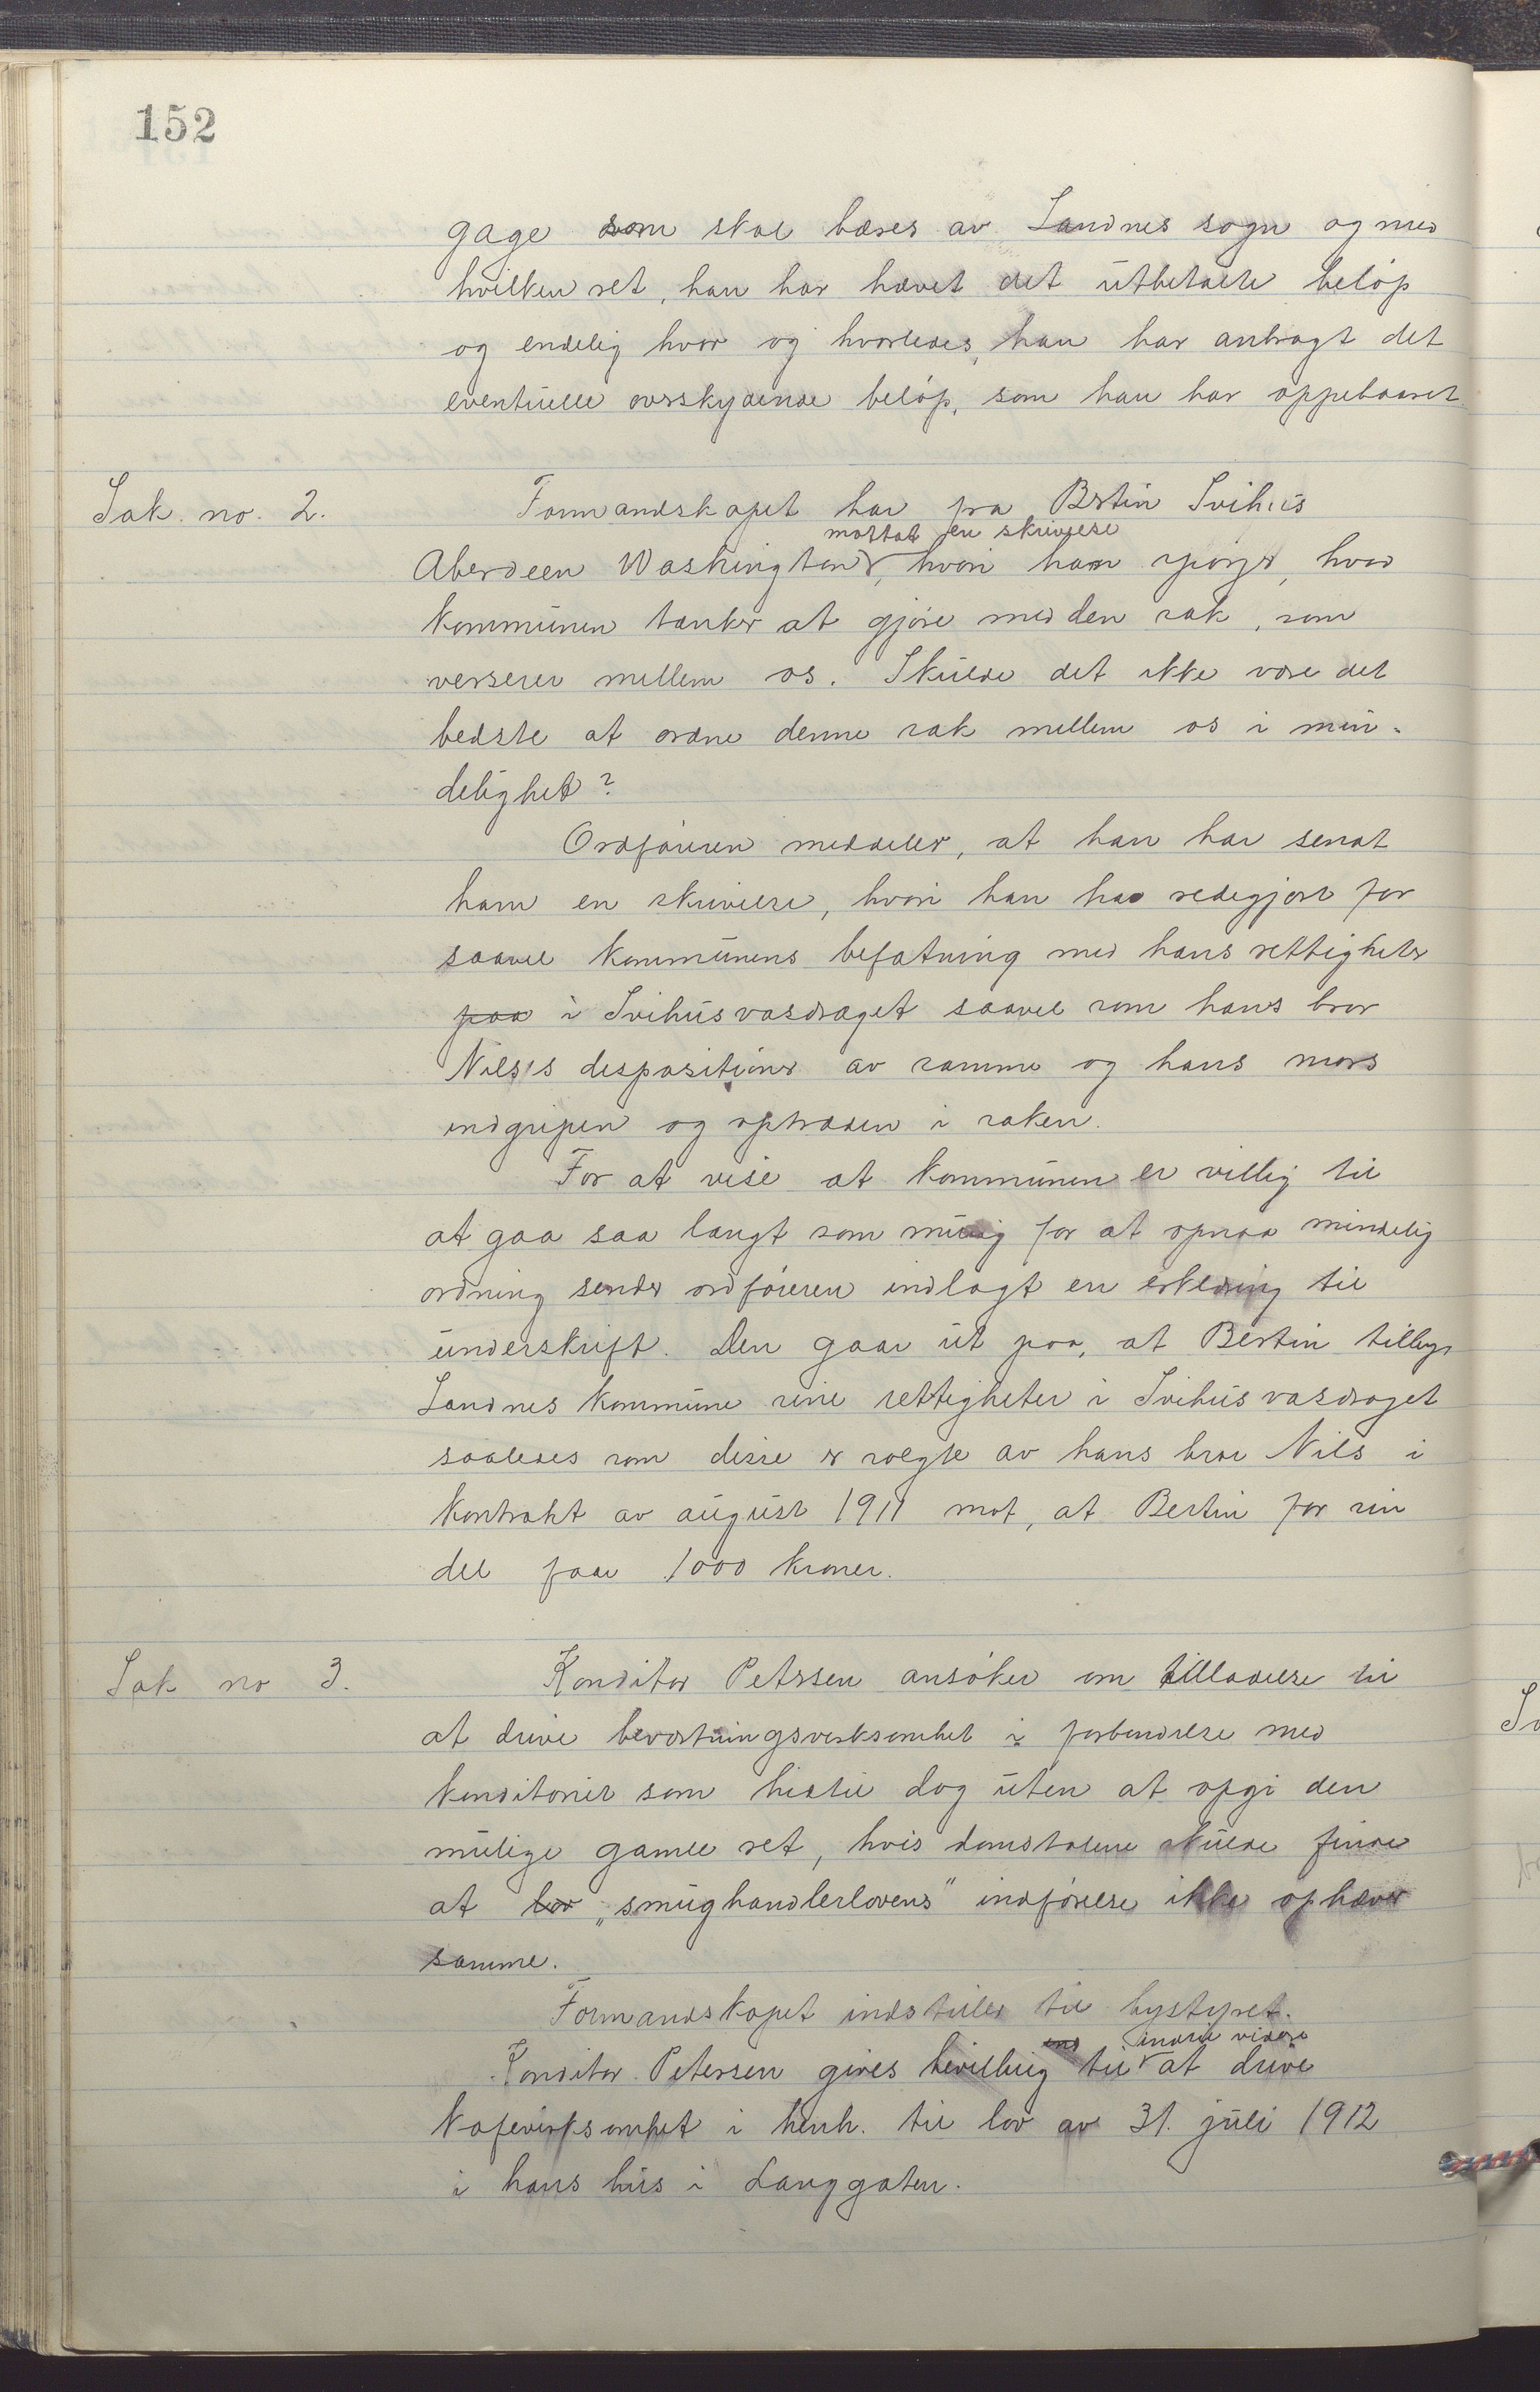 152
gage som skal bæres av Sandnes sogn og med
hvilken ret, han har hævet det utbetalte beløp
og endelig hvor og hvorledes, han har anbragt det
eventuelle overskydende beløp, som han har oppebaaret.
Sak no. 2.
Formandskapet har fra Bertin Svihus
mottat en skrivelse
Aberdeen Washington, hvori han spørger, hvad
kommunen tænker at gjøre med den sak, som
verserer mellem os. Skulde det ikke være det
bedste at ordne denne sak mellem os i min-
delighet?
Ordføreren meddeler, at han har sendt
ham en skrivelse, hvori han har redegjort for
saavel kommunens befatning med hans rettigheter
paa i Svihusvasdraget saavel som hans bror
Nilses dispositioner av samme og hans mors
indgripen og optræden i saken.
For at vise at kommunen er villig til
at gaa saa langt som mulig for at opnaa mindelig
ordning sender ordføreren indlagt en erklæring til
underskrift. Den gaar ut paa, at Bertin tilbyr
Sandnes kommune sine rettigheter i Svihusvasdraget
saaledes som disse er solgte av hans bror Nils i
kontrakt av august 1911 mot, at Bertin for sin
del faar 1000 kroner.
Sak no 3.
Konditor Petersen ansøker om tilladelse til
at drive bevertningsverksomhet i forbindelse med
konditoriet som hittil dog uten at opgi den
mulige gamle ret, hvis domstolene skulde finde
at lov „smughandlerlovens" indførelse ikke ophæver
samme.
Formandskapet indstiller til bystyret.
ens indtil videre
Konditor Petersen gives bevilling til at drive
Kafevirksomhet i henh. til lov av 31. juli 1912
i hans hus i Langgaten.